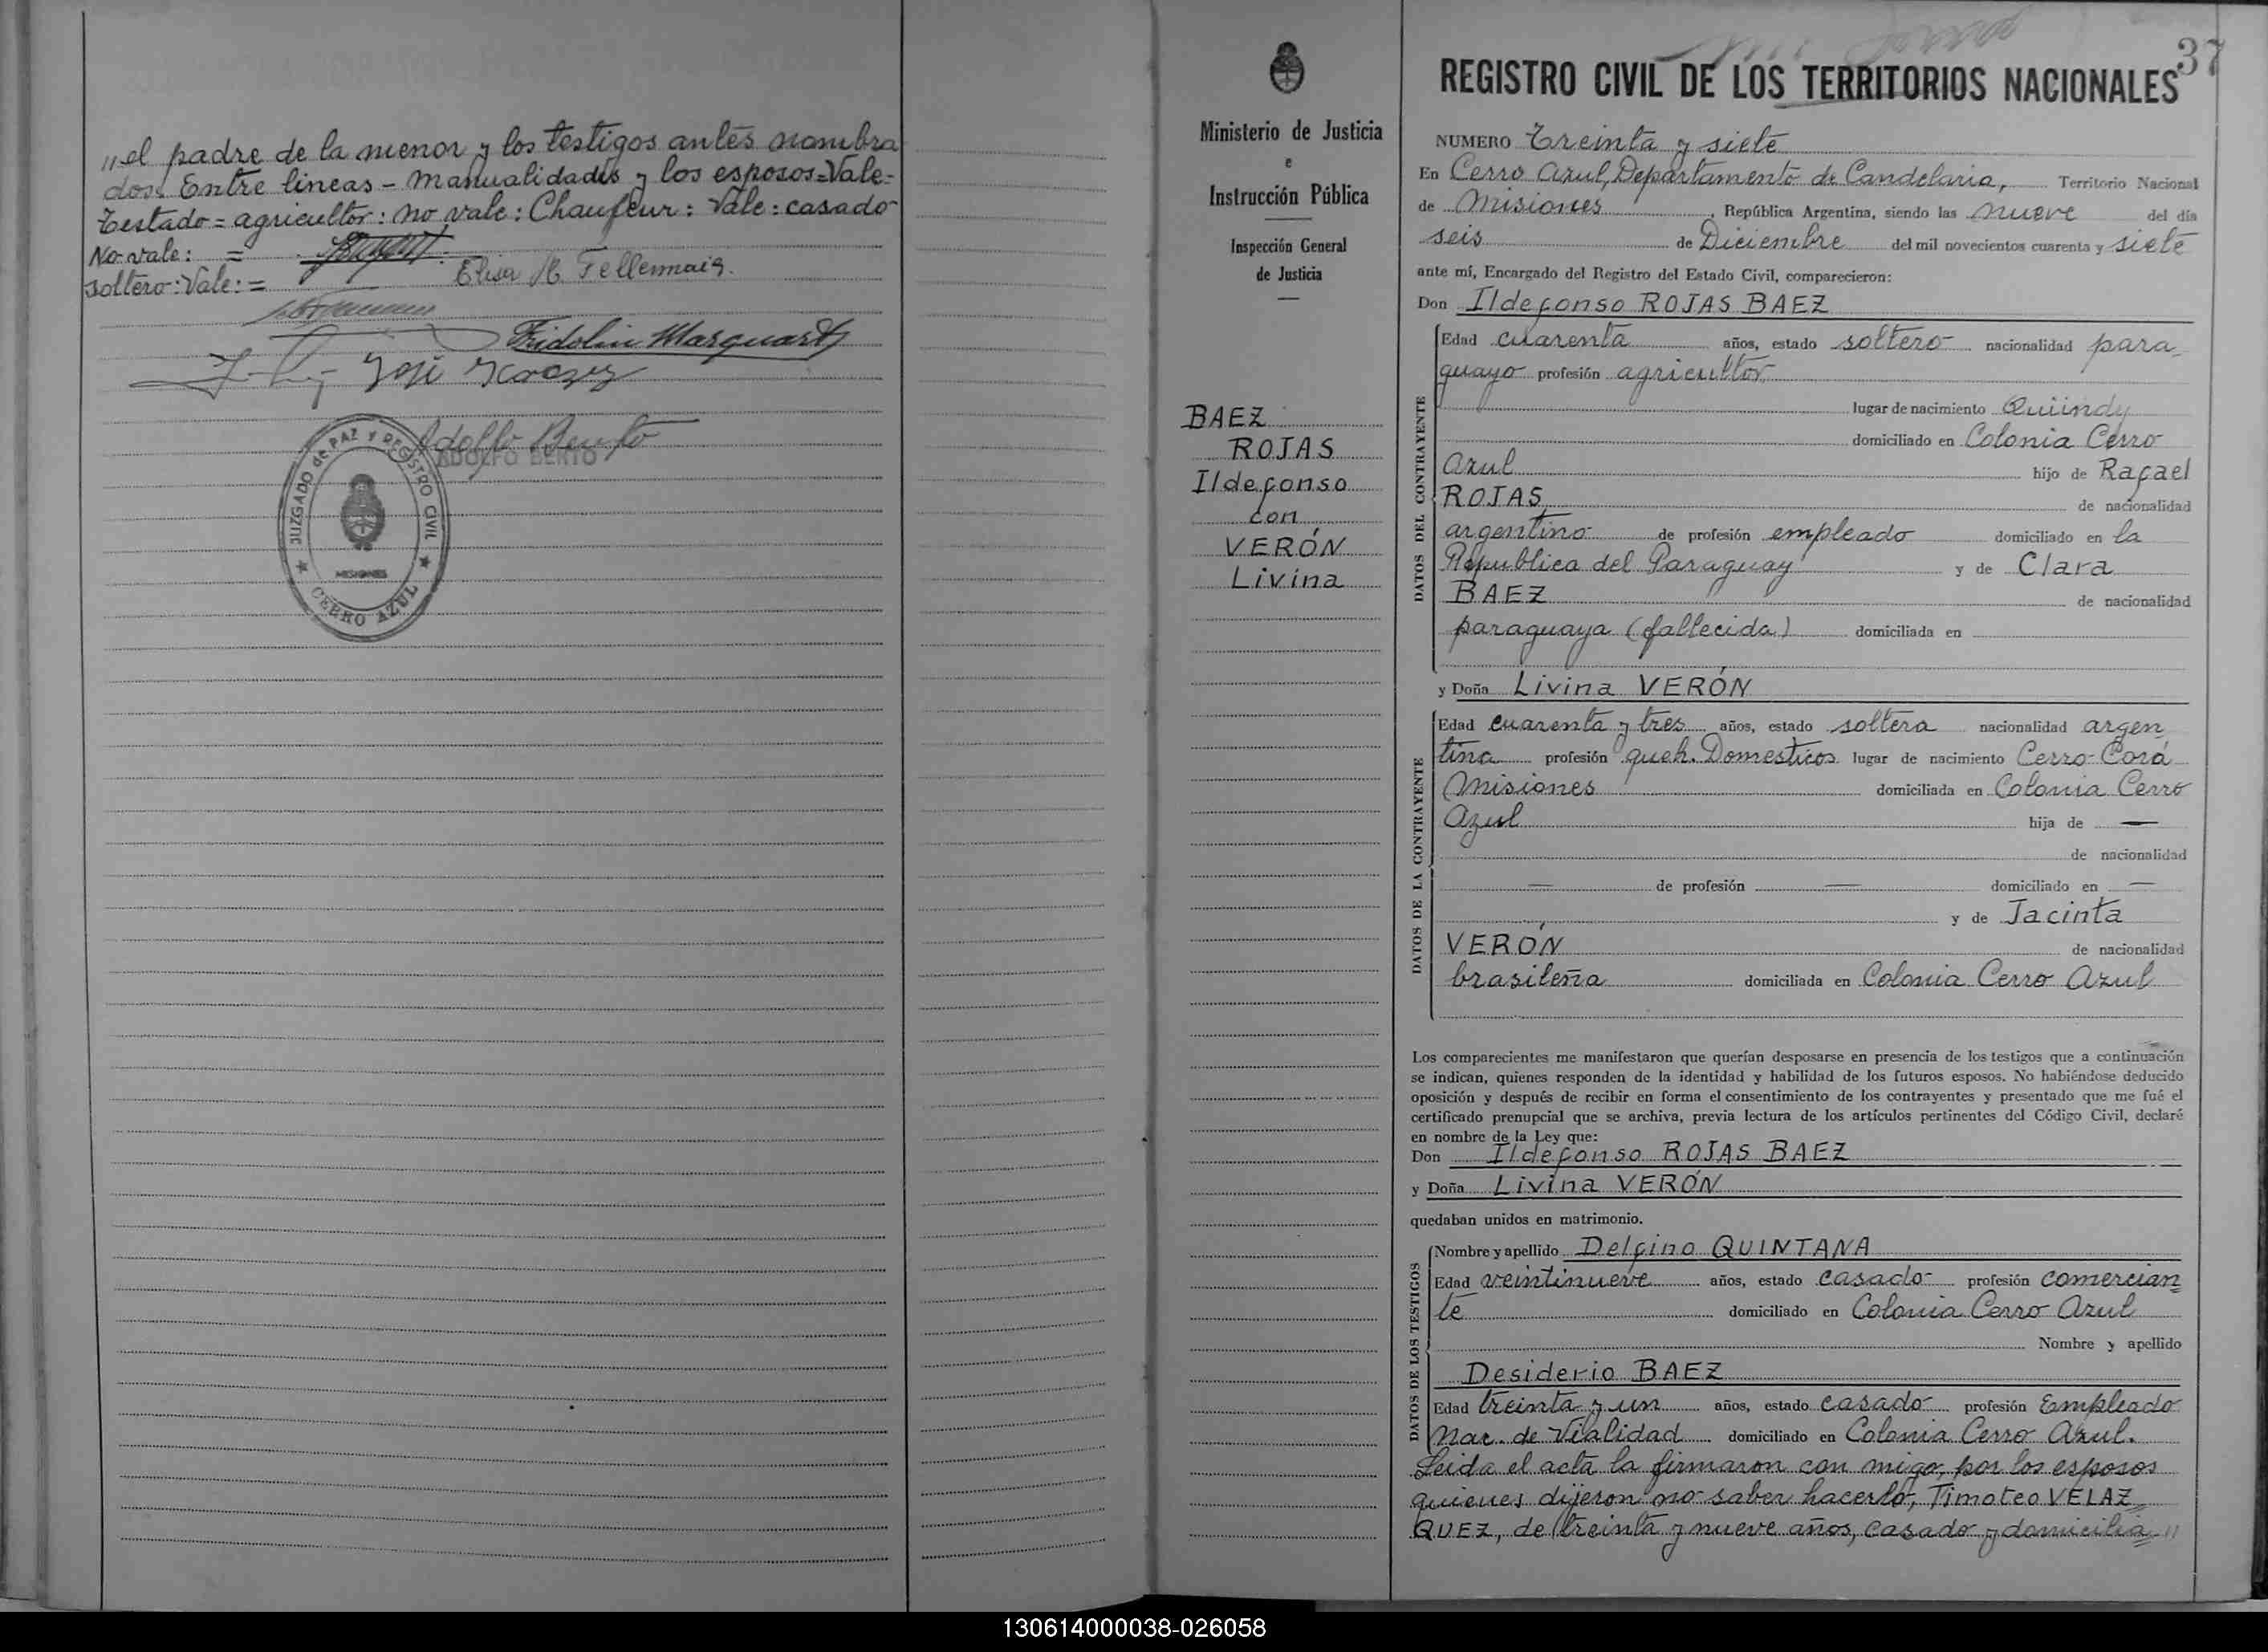 „el padre de la menor y los testigos antes nombra
dos. Entre lineas - manualidades y los esposos=Vale=
Testado = agricultor: no vale: Chaufeur: Vale: casado
No vale: =
soltero: Vale: =
Elisa M. Fellermaig.
Fridolin Marquardt
José
Adolfo Berto
ADOLFO BERTO
JUZGADO de PAZ Y REGISTRO CIVIL
MISIONES
CERRO AZUL
Ministerio de Justicia
e
Instrucción Pública
Inspección General
de Justicia
BAEZ
ROJAS
Ildefonso
con
VERÓN
Livina
37
REGISTRO CIVIL DE LOS TERRITORIOS NACIONALES
NUMERO Treinta y siete
En Cerro Azul, Departamento de Candelaria, Territorio Nacional
de Misiones, República Argentina, siendo las nueve del día
seis de Diciembre del mil novecientos cuarenta y siete
ante mí, Encargado del Registro del Estado Civil, comparecieron:
Don Ildefonso ROJAS BAEZ
DATOS DEL CONTRAYENTE
Edad cuarenta años, estado soltero nacionalidad para-
guayo profesión agricultor
lugar de nacimiento Quiindy
domiciliado en Colonia Cerro
Azul hijo de Rafael
ROJAS de nacionalidad
argentino de profesión empleado domiciliado en la
Republica del Paraguay y de Clara
BAEZ de nacionalidad
paraguaya (fallecida) domiciliada en
y Doña Livina VERÓN
DATOS DE LA CONTRAYENTE
Edad cuarenta y tres años, estado soltera nacionalidad argen
tina profesión queh. Domesticos lugar de nacimiento Cerro-Corá
Misiones domiciliada en Colonia Cerro
Azul hija de —
de nacionalidad
— de profesión — domiciliado en —
y de Jacinta
VERÓN de nacionalidad
brasileña domiciliada en Colonia Cerro Azul
Los comparecientes me manifestaron que querían desposarse en presencia de los testigos que a continuación
se indican, quienes responden de la identidad y habilidad de los futuros esposos. No habiéndose deducido
oposición y después de recibir en forma el consentimiento de los contrayentes y presentado que me fué el
certificado prenupcial que se archiva, previa lectura de los artículos pertinentes del Código Civil, declaré
en nombre de la Ley que:
Don Ildefonso ROJAS BAEZ
y Doña Livina VERÓN
quedaban unidos en matrimonio.
DATOS DE LOS TESTIGOS
Nombre y apellido Delfino QUINTANA
Edad veintinueve años, estado casado profesión comercian=
te domiciliado en Colonia Cerro Azul
Nombre y apellido
Desiderio BAEZ
Edad treinta y un años, estado casado profesión Empleado
Nac. de Vialidad domiciliado en Colonia Cerro Azul.
Leida el acta la firmaron con migo, por los esposos
quienes dijeron no saber hacerlo, Timoteo VELAZ=
QUEZ, de treinta y nueve años, casado y domicilia= „
130614000038-026058